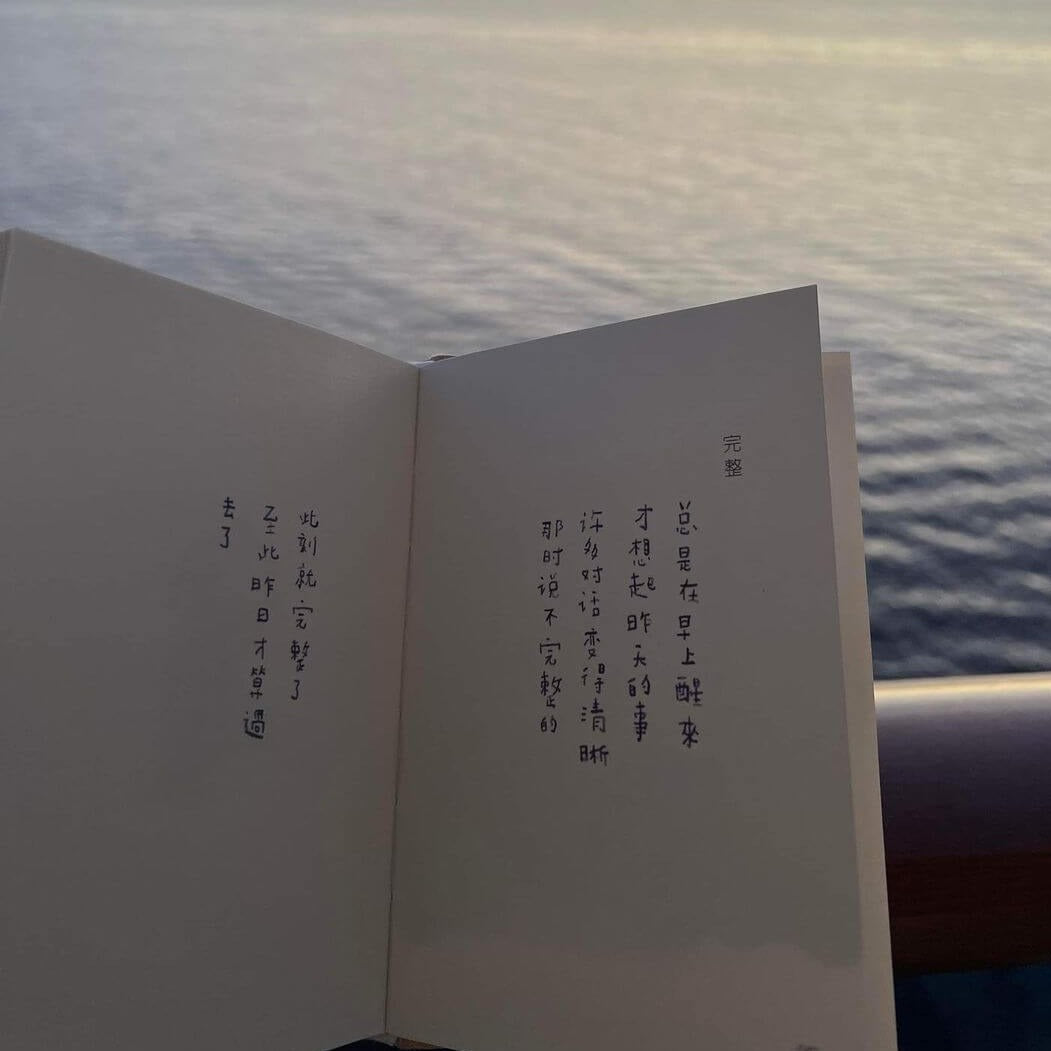 完整
总是在早上醒來
才想起昨天的事
许多对话变得清晰
那时说不完整的
此刻就完整了
至此昨日才算過
去了